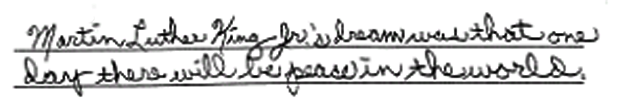 Martin Luther King Jr.'s dream was that one
day there will be peace in the world.